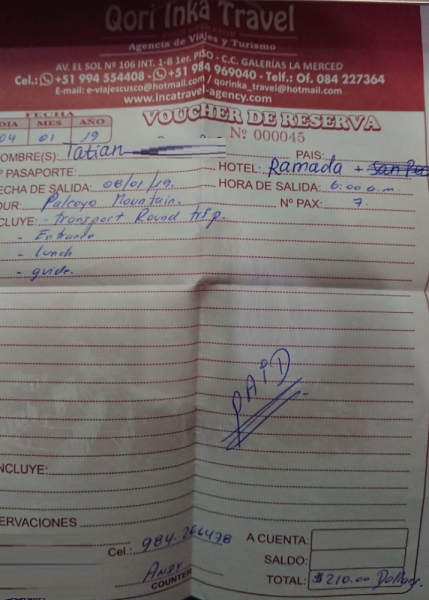 Qori Inka Travel
Agencia de Viajes y Turismo
AV. EL SOL Nº 106 INT. 1-B 1er. PISO - C.C. GALERÍAS LA MERCED
Cel.: +51 994 554408 - +51 984 969040 - Telf.: Of. 084 227364
E-mail: e-viajescusco@hotmail.com / qorinka_travel@hotmail.com
www.incatravel-agency.com
FECHA
DIA MES AÑO
04 01 19
VOUCHER DE RESERVA
Nº 000045
NOMBRE(S): Tatian
PAIS:
º PASAPORTE:
HOTEL: Ramada +
FECHA DE SALIDA: 08/01/19.
HORA DE SALIDA: 6:00 a.m.
OUR: Palcoyo Mountain.
Nº PAX: 7.
CLUYE: - Transport Round trip.
- Entrance
- lunch
- guide.
PAID
NCLUYE:
ERVACIONES
Cel.: 984-266478
A CUENTA:
SALDO:
ANDY
COUNTER
TOTAL: $210.00 Dollars.